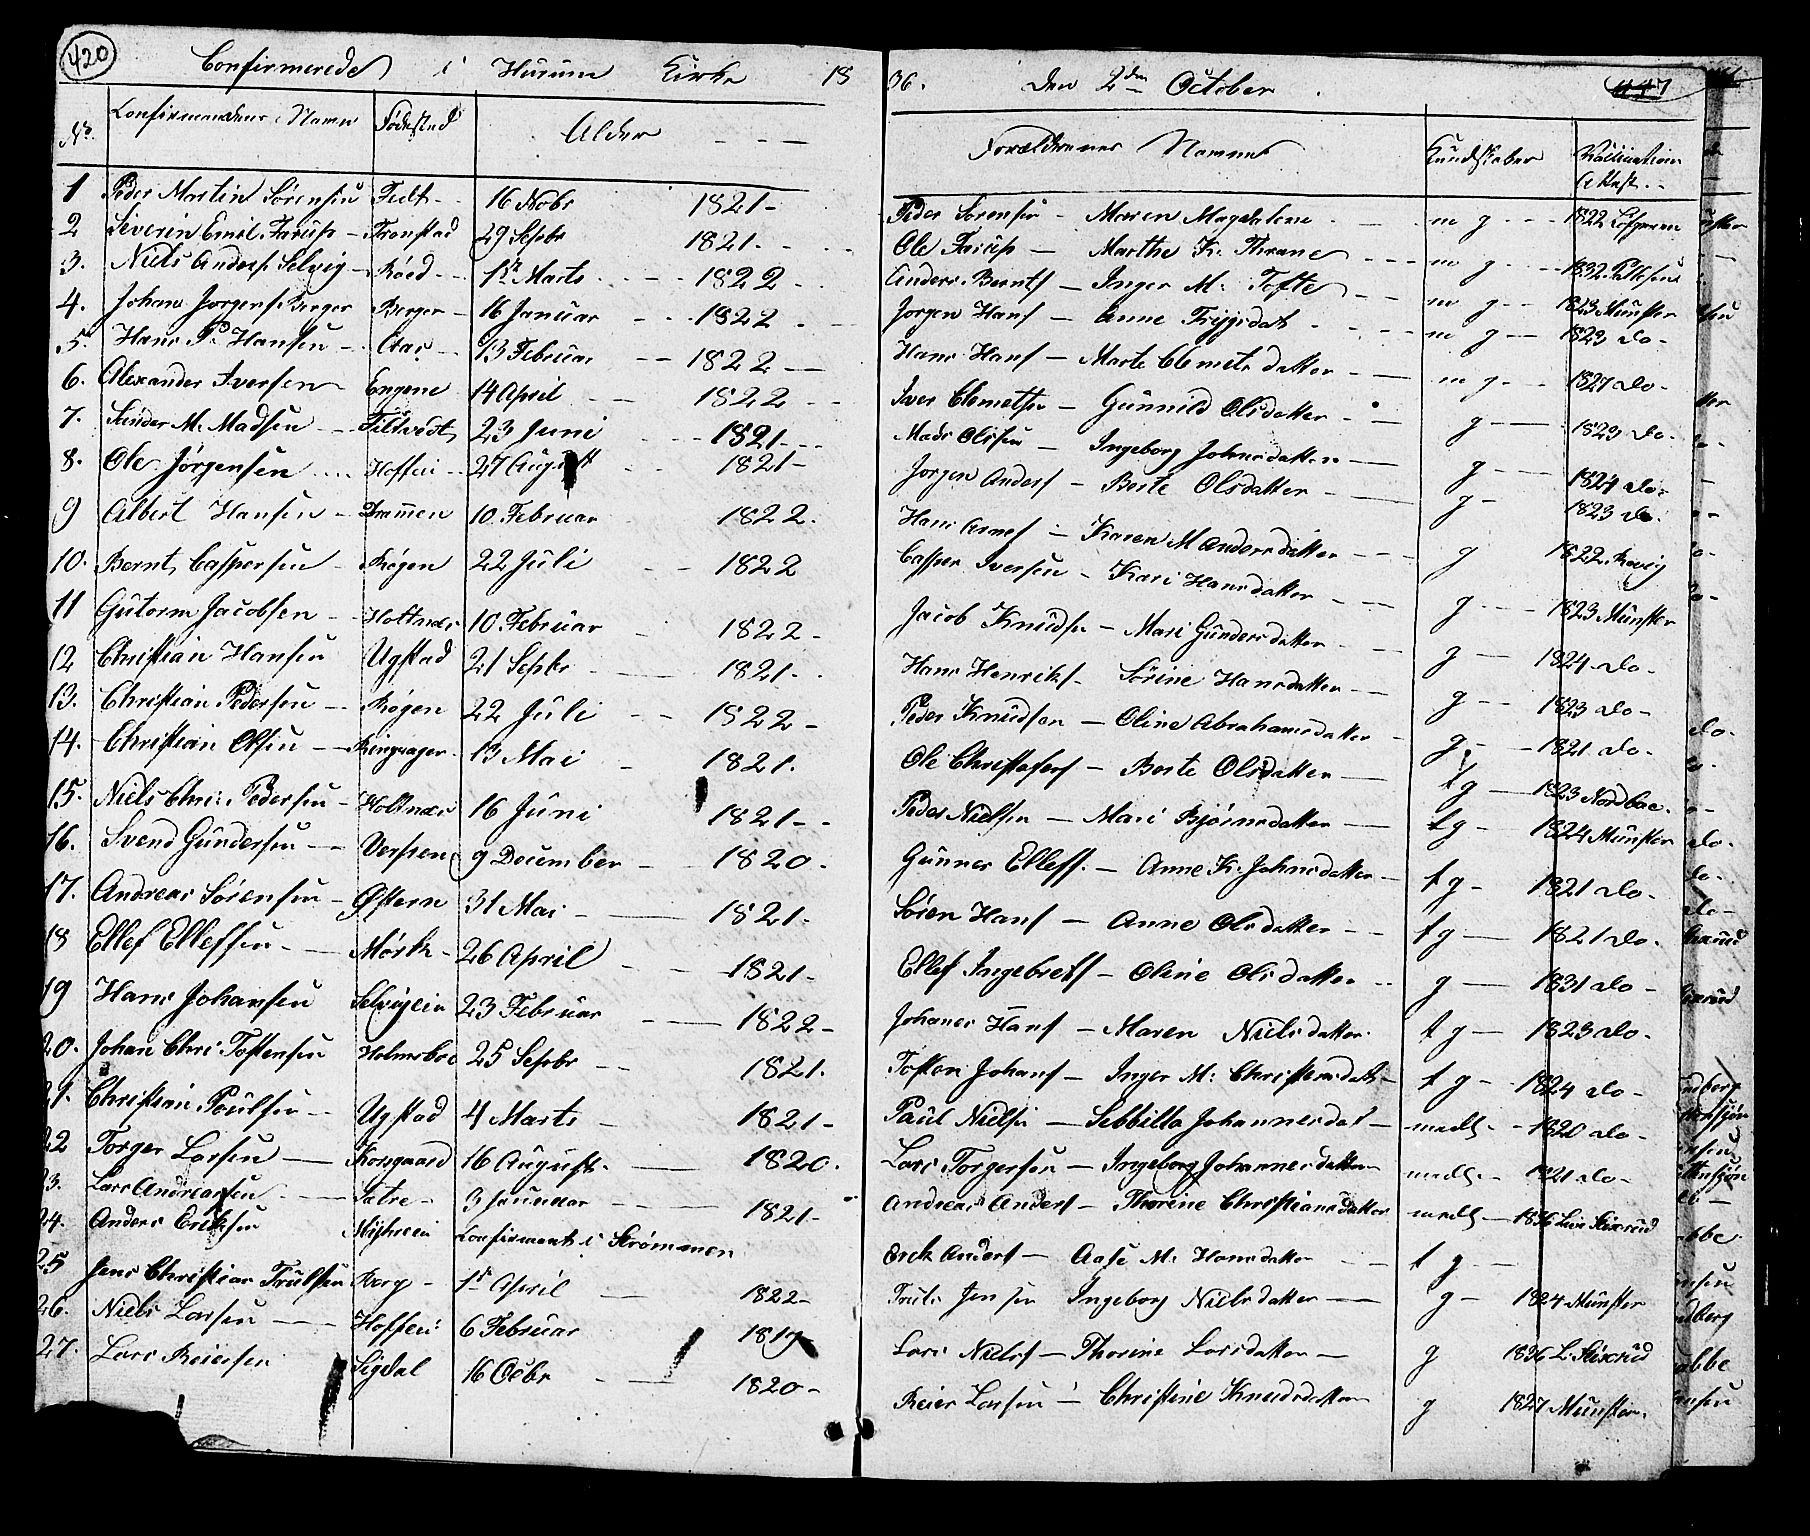 420
Confirmerede i Hurum Kirke 1836. Den 2den October. 447
No. Confirmandens Navn Fødested Alder Forældrenes Navne Kundskaber Vaccinations Attest
1 Peder Martin Sørensen Tedt 16 Nobr 1821 Peder Sørensen Maren Magdalene m g 1822
2 Severin Emil Farup Tronstad 29 Sepbr 1821 Ole Farup Marthe K. Thrane m g 1832
3. Niels Anders. Selvig Røed 12 Marts 1822 Anders Bernts Inger M. Tofte m g 1823 Münster
4. Johan Jørgens. Berger Berger 16 Januar 1822 Jørgen Hans Anne Trygsdat m g 1823 do
5. Hans P. Hansen Aas 13 Februar 1822 Hans Hans Marte Clemetsdatter m g 1827 do
6. Alexander Iversen Engene 14 April 1822 Iver Clemetsen Gunnild Olsdatter g 1823 do
7. Gunder M. Madsen Filtvedt 23 Juni 1821 Mads Olssen Ingeborg Johnsdatter g 1824 do
8. Ole Jørgensen Hoffen 27 August 1821 Jørgen Anders Berte Olsdatter g 1823 do
9 Albert Hansen Drammen 10 Februar 1822. Hans Arnes Karen M Andersdatter g 1822
10. Bernt Caspersen Røgen 22 Juli 1822 Casper Iversen Kari Hansdatter g 1823 Münster
11 Gutorm Jacobsen Holtnæs 10 Februar 1822 Jacob Knudsen Mari Gundersdatter g 1824 do
12 Christian Hansen Ugstad 21 Sepbr 1821 Hans Henriks Sørine Hansdatter g 1823 do
13. Christian Pedersen Røgen 22 Juli 1822 Peder Knudsen Oline Abrahamsdatter g 1821 do
14. Christian Olsen Ringsager 13 Mai 1821. Ole Christofers Berte Olsdatter tg 1823 Nordbae
15. Niels Chri: Pedersen Holtnæs 16 Juni 1821 Peder Nielsen Mari Bjørnsdatter tg 1824 Münster
16. Svend Gundersen Versten 9 December 1820 Gunner Ellefs. Anne K. Johnsdatter tg 1821 do
17. Andreas Sørensen Østern 31 Mai 1821 Søren Hans Anne Olsdatter tg 1821 do
18 Ellef Ellefsen Mørk 26 April 1821 Ellef Ingebrets Oline Olsdatter g 1831 do
19 Hans Johansen Selvigein 23 Februar 1822 Johanes Hans Maren Nielsdatter tg 1823 do
20. Johan Chri Toftensen Holmsboe 25 Sepbr 1821. Toften Johans Inger M: Christensdatr tg 1824 do
21. Christian Poulsen Ugstad 4 Marts 1821 Paul Nielsen Sebbilla Johannesdat madl. 1820 do
22 Torger Larsen Korsgaard 16 August 1820. Lars Torgersen Ingeborg Johannesdatter madl. 1821 do
23. Lars Andreassen Sætre 3 Januar 1821 Andreas Anders Thorine Christiansdatter madl 1836
24. Anders Eriksen Confirmert i Strømmen Erik Anders Aase M: Hansdatter t g
25 Jens Christian Trulsen Berg 1ste April 1822 Truls Jensen Ingeborg Nielsdatter g 1824 Münster
26. Niels Larsen Hoffen 6 Februar 1819 Lars Niels Thorine Larsdatter g 1836
27. Lars Reiersen Sigdal 16 Ocbr 1820 Reier Larsen Christine Knudsdatter g 1827 Münster.